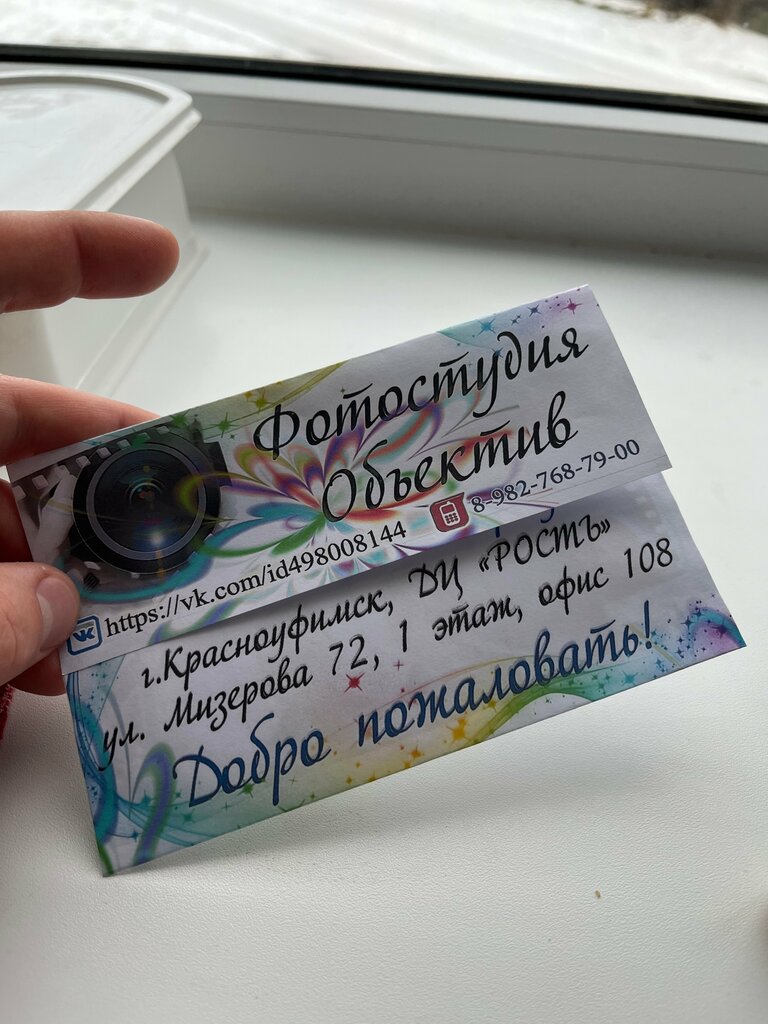 Фотостудия
Объектив
https://vk.com/id498008144 8-982-768-79-00
г.Красноуфимск, ДЦ «РОСТЪ»
ул. Мизерова 72, 1 этаж, офис 108
Добро пожаловать!